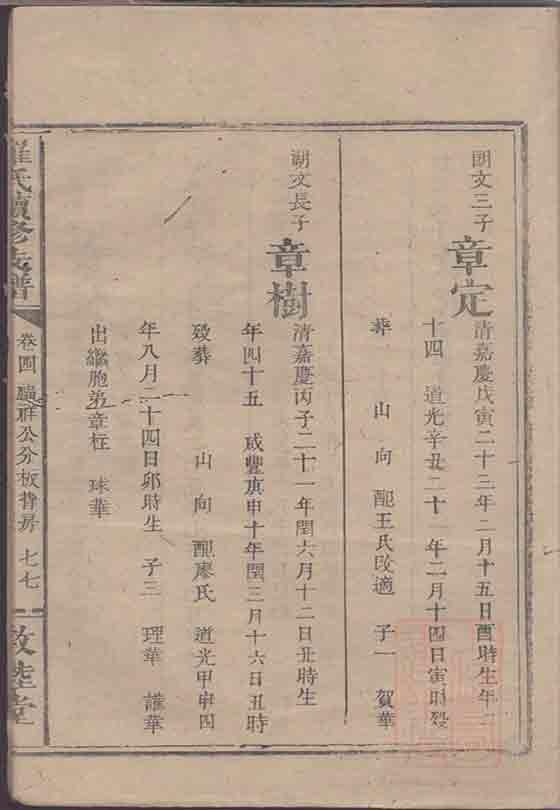 朗文三子
章定
清嘉慶戊寅二十三年二月十五日酉時生年二
十四 道光辛丑二十一年二月十四日寅時殁
葬 山 向 配王氏改適 子一 賀華
朗文長子
章樹
清嘉慶丙子二十一年閏六月十二日丑時生
年四十五 咸豐庚申十年閏三月十六日丑時
殁葬 山 向 配廖氏 道光甲申四
年八月二十四日卯時生 子三 理華 謹華
出繼胞弟章柱 球華
羅氏續修支譜
卷四 公分枚 房 七七
敦睦堂